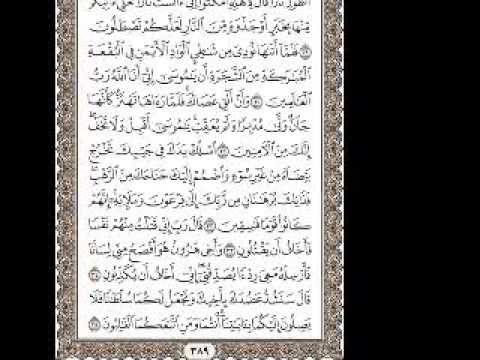 ٱلطُّورِ نَارًا قَالَ لِأَهْلِهِ ٱمْكُثُوٓا۟ إِنِّىٓ ءَانَسْتُ نَارًا لَّعَلِّىٓ ءَاتِيكُم
مِّنْهَا بِخَبَرٍ أَوْ جَذْوَةٍ مِّنَ ٱلنَّارِ لَعَلَّكُمْ تَصْطَلُونَ
﴿٢٩﴾ فَلَمَّآ أَتَىٰهَا نُودِىَ مِن شَـٰطِئِ ٱلْوَادِ ٱلْأَيْمَنِ فِى ٱلْبُقْعَةِ
ٱلْمُبَـٰرَكَةِ مِنَ ٱلشَّجَرَةِ أَن يَـٰمُوسَىٰٓ إِنِّىٓ أَنَا ٱللَّهُ رَبُّ
ٱلْعَـٰلَمِينَ ﴿٣٠﴾ وَأَنْ أَلْقِ عَصَاكَ فَلَمَّا رَءَاهَا تَهْتَزُّ كَأَنَّهَا
جَآنٌّ وَلَّىٰ مُدْبِرًا وَلَمْ يُعَقِّبْ يَـٰمُوسَىٰٓ أَقْبِلْ وَلَا تَخَفْ
إِنَّكَ مِنَ ٱلْـَٔامِنِينَ ﴿٣١﴾ ٱسْلُكْ يَدَكَ فِى جَيْبِكَ تَخْرُجْ
بَيْضَآءَ مِنْ غَيْرِ سُوٓءٍ وَٱضْمُمْ إِلَيْكَ جَنَاحَكَ مِنَ ٱلرَّهْبِ
فَذَٰنِكَ بُرْهَـٰنَانِ مِن رَّبِّكَ إِلَىٰ فِرْعَوْنَ وَمَلَإِي۟هِۦٓ إِنَّهُمْ
كَانُوا۟ قَوْمًا فَـٰسِقِينَ ﴿٣٢﴾ قَالَ رَبِّ إِنِّى قَتَلْتُ مِنْهُمْ نَفْسًا
فَأَخَافُ أَن يَقْتُلُونِ ﴿٣٣﴾ وَأَخِى هَـٰرُونُ هُوَ أَفْصَحُ مِنِّى لِسَانًا
فَأَرْسِلْهُ مَعِىَ رِدْءًا يُصَدِّقُنِىٓ إِنِّىٓ أَخَافُ أَن يُكَذِّبُونِ ﴿٣٤﴾
قَالَ سَنَشُدُّ عَضُدَكَ بِأَخِيكَ وَنَجْعَلُ لَكُمَا سُلْطَـٰنًا فَلَا
يَصِلُونَ إِلَيْكُمَا بِـَٔايَـٰتِنَآ أَنتُمَا وَمَنِ ٱتَّبَعَكُمَا ٱلْغَـٰلِبُونَ ﴿٣٥﴾
٣٨٩